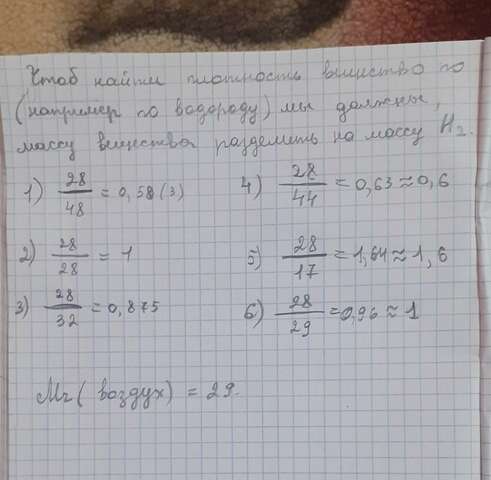 Чтоб найти плотность вещество по
(например по водороду) мы должны,
массу вещества разделить на массу H₂.
1) 28/48 = 0,58(3)
4) 28/44 = 0,63 ≈ 0,6
2) 28/28 = 1
5) 28/17 = 1,64 ≈ 1,6
3) 28/32 = 0,875
6) 28/29 = 0,96 ≈ 1
Mr( воздух) = 29